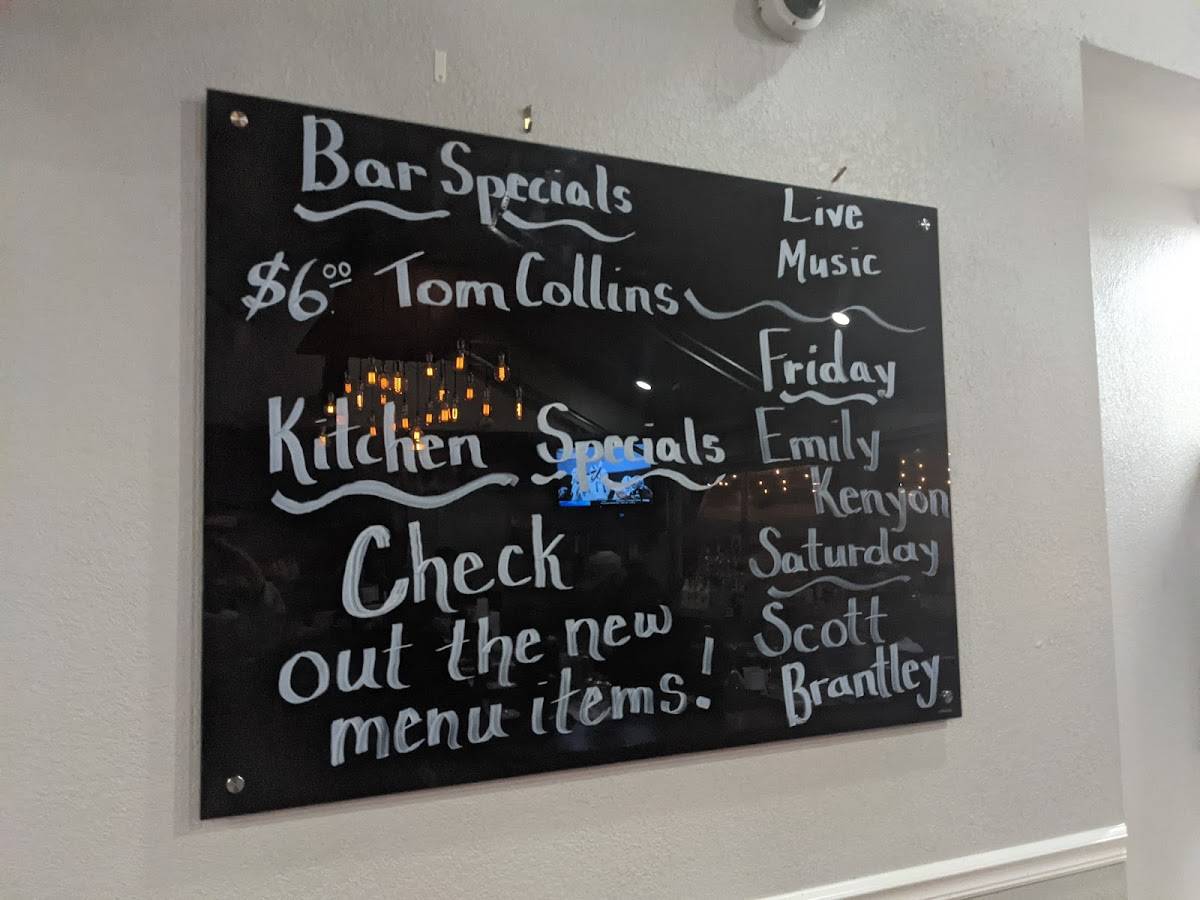 Bar Specials
$6.00 Tom Collins
Kitchen Specials
Check
out the new
menu items!
Live
Music
Friday
Emily
Kenyon
Saturday
Scott
Brantley